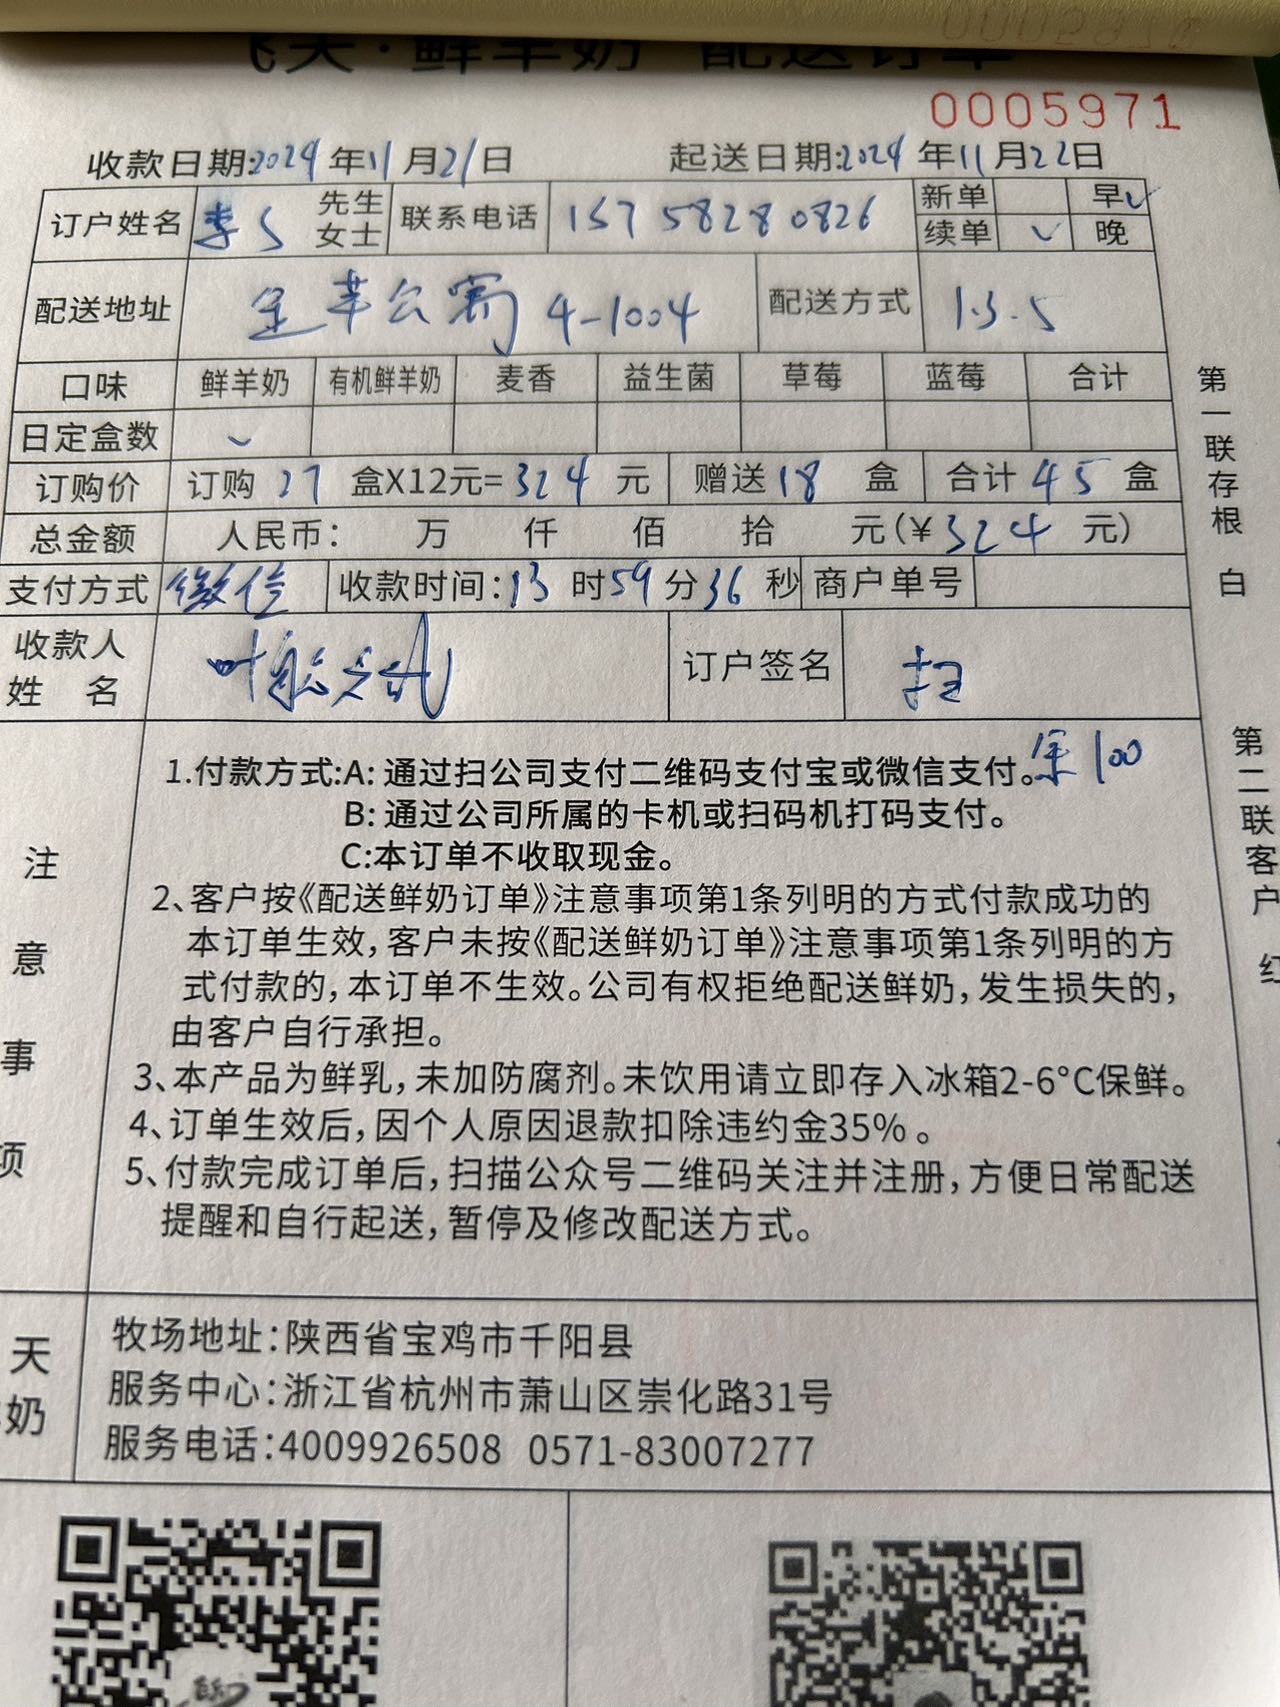 飞天·鲜羊奶 配送订单
0005971
收款日期:2024年11月21日 起送日期:2024年11月22日
订户姓名 李S 先生 女士 联系电话 15758280826 新单 早✓
续单 ✓ 晚
配送地址 公寓 4-1004 配送方式 1.3.5
口味 鲜羊奶 有机鲜羊奶 麦香 益生菌 草莓 蓝莓 合计
日定盒数 ✓
订购价 订购 27 盒X12元=324 元 赠送 18 盒 合计 45 盒
总金额 人民币: 万 仟 佰 拾 元(¥324 元)
支付方式 微信 收款时间:13 时59 分36 秒 商户单号
收款人
姓 名 订户签名 扫
余100
注意事项
1.付款方式:A: 通过扫公司支付二维码支付宝或微信支付。
B: 通过公司所属的卡机或扫码机打码支付。
C:本订单不收取现金。
2、客户按《配送鲜奶订单》注意事项第1条列明的方式付款成功的
本订单生效,客户未按《配送鲜奶订单》注意事项第1条列明的方
式付款的,本订单不生效。公司有权拒绝配送鲜奶,发生损失的,
由客户自行承担。
3、本产品为鲜乳,未加防腐剂。未饮用请立即存入冰箱2-6°C保鲜。
4、订单生效后,因个人原因退款扣除违约金35% 。
5、付款完成订单后,扫描公众号二维码关注并注册,方便日常配送
提醒和自行起送,暂停及修改配送方式。
天
奶
牧场地址:陕西省宝鸡市千阳县
服务中心:浙江省杭州市萧山区崇化路31号
服务电话:4009926508 0571-83007277
第一联存根 白
第二联客户 红